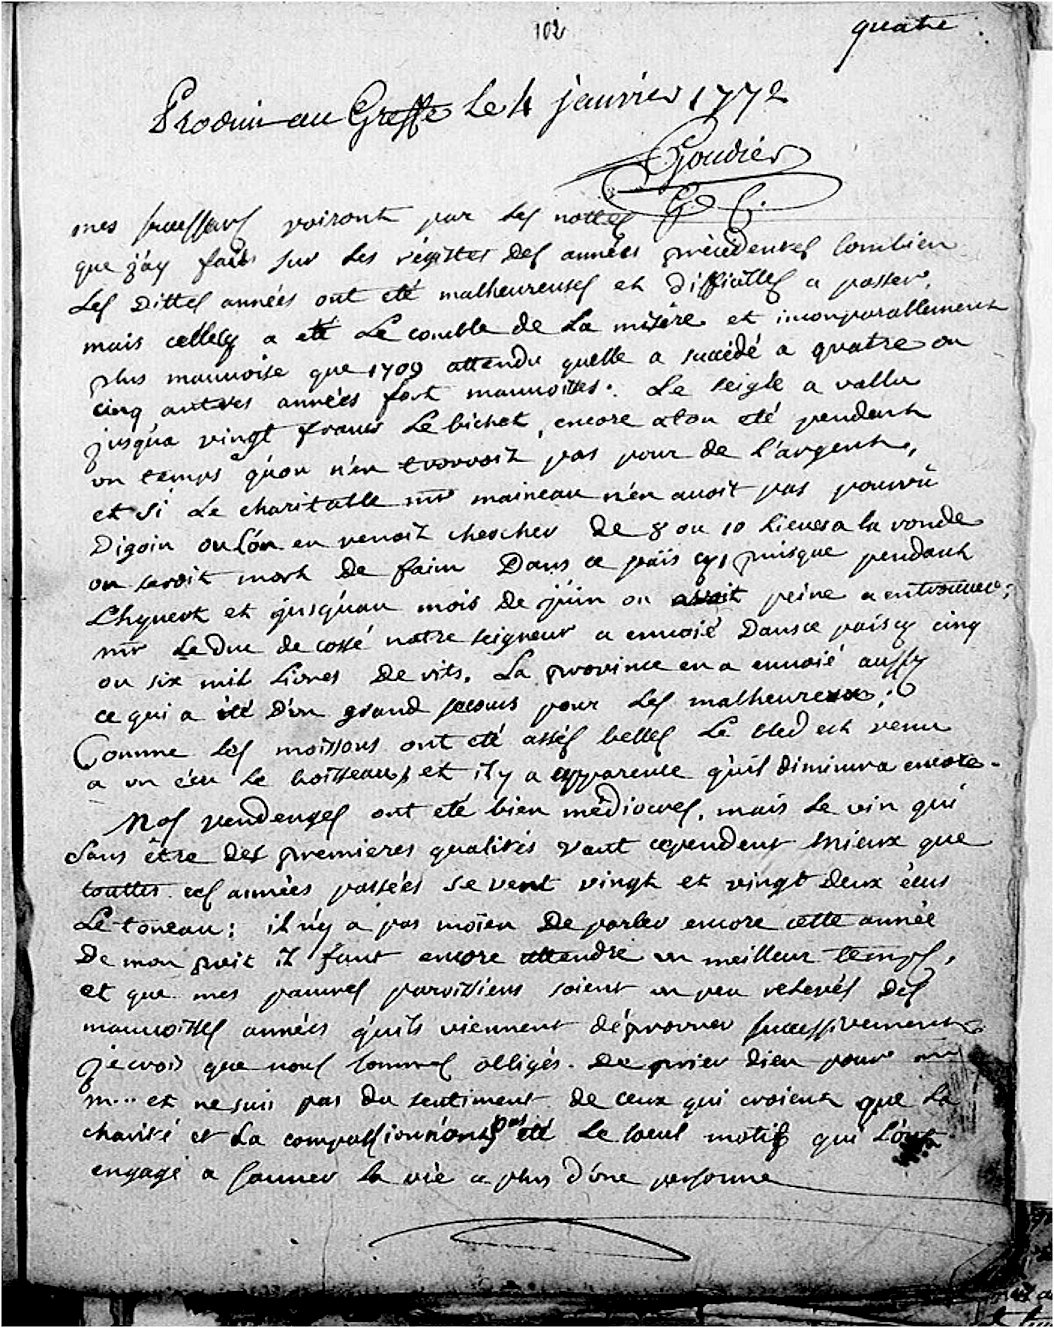 102
quatre
Produit au Greffe Le 4 janvier 1772
Goudier
mes successeurs voiront par les nottes
que j'ay fait sur les régittes des années précédentes combien
les dittes années ont eté malheureuses et difficilles a passer,
mais cellecy a eté Le comble de La misère et incomparablement
plus mauvoise que 1709 attendu quelle a succédé a quatre ou
cinq autres années fort mauvoises. Le seigle a vallu
jusqu'a vingt francs Le bichet, encore aton eté pendant
un temps qu'on n'en trouvoit pas pour de l'argent,
et si Le charitable mr maineau n'en avoit pas pourvû
Digoin ou l'on en venoit chercher de 8 ou 10 Lieues a la ronde
on seroit mort de faim Dans ce païs cy, puisque pendant
L'hyvert et jusqu'au mois de juin on avoit peine a en trouver;
mr Le Duc de cossé notre seigneur a envoié Dans ce païs cy cinq
ou six mil Livres De rits. La province en a envoié aussy
ce qui a été D'un grand secours pour Les malheureux;
Comme Les moissons ont eté assés belles Le bled est venu
a un écu Le boisseau, et il y a apparence qu'il diminura encore.
Nos vendenges ont eté bien médiocres, mais Le vin qui
sans être des premieres qualités vaut cependent mieux que
touttes ces années passées se vent vingt et vingt deux écus
Le toneau; il n'y a pas moïen De parler encore cette année
De mon il faut encore attendre un meilleur temps,
et que mes pauvres paroissiens soient un peu relevés des
mauvoises années qu'ils viennent d'éprouver successivement
je crois que nous sommes obligés de prier dieu pour mr
m... et ne suis pas du sentiment de ceux qui croient que La
charité et La compassion n'ont pas été Le seul motif qui L'ont
engagé a sauver La vie a plus d'une personne